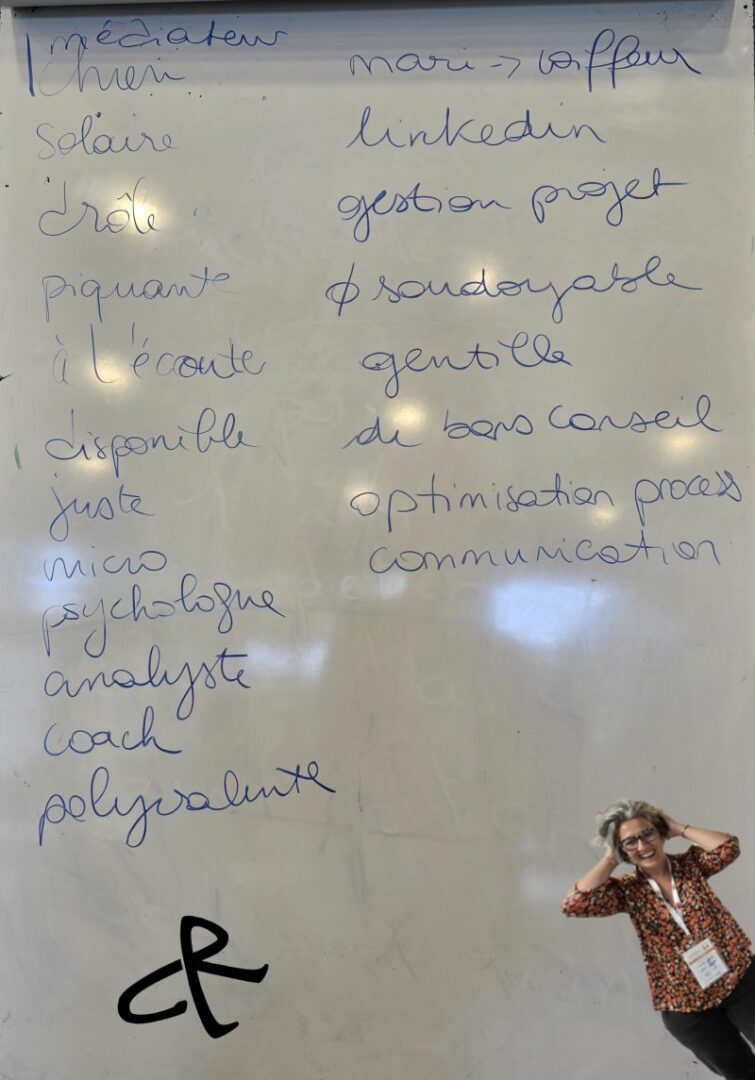 médiateur
chien
solaire
drôle
piquante
à l'écoute
disponible
juste
micro
psychologue
analyste
coach
polyvalente
mari -> coiffeur
linkedin
gestion projet
ϕ soudoyable
gentille
de bons conseil
optimisation process
communication
CR